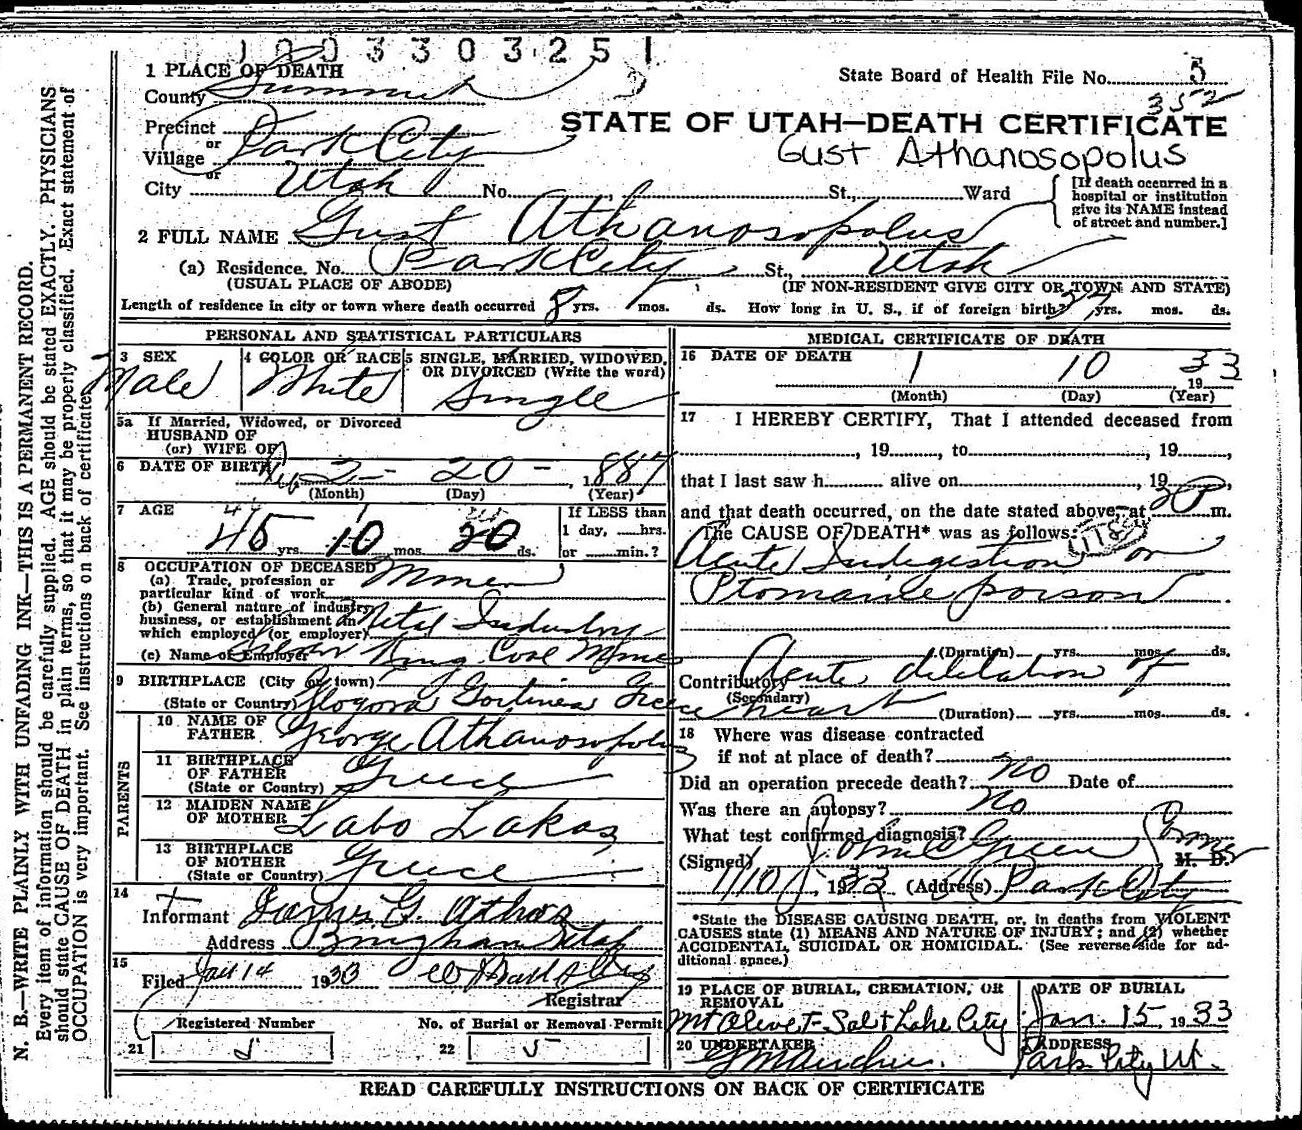 1 0 0 3 3 0 3 2 5 1
1 PLACE OF DEATH
State Board of Health File No. 5
352
County Summit
STATE OF UTAH—DEATH CERTIFICATE
Gust Athanosopolus
Precinct
or
Village Park City
or
City Utah No. St., Ward
[If death occurred in a
hospital or institution
give its NAME instead
of street and number.]
2 FULL NAME Gust Athanosopolus
(a) Residence. No. Park City St., Utah
(USUAL PLACE OF ABODE) (IF NON-RESIDENT GIVE CITY OR TOWN AND STATE)
Length of residence in city or town where death occurred 8 yrs. mos. ds. How long in U. S., if of foreign birth? 27 yrs. mos. ds.
PERSONAL AND STATISTICAL PARTICULARS
3 SEX Male
4 COLOR OR RACE White
5 SINGLE, MARRIED, WIDOWED,
OR DIVORCED (Write the word)
Single
5a If Married, Widowed, or Divorced
HUSBAND OF
(or) WIFE OF
6 DATE OF BIRTH 2 - 20 - 1887
(Month) (Day) (Year)
7 AGE 45 yrs. 10 mos. 20 ds.
If LESS than
1 day, hrs.
or min.?
8 OCCUPATION OF DECEASED
(a) Trade, profession or
particular kind of work Miner
(b) General nature of industry,
business, or establishment in
which employed (or employer) Metal Industry
(c) Name of Employer King Coal Mine
9 BIRTHPLACE (City or town)
(State or Country) Gortinas Greece
PARENTS
10 NAME OF
FATHER George Athanosopolus
11 BIRTHPLACE
OF FATHER
(State or Country) Greece
12 MAIDEN NAME
OF MOTHER Labo Lakas
13 BIRTHPLACE
OF MOTHER
(State or Country) Greece
14
Informant James G. Athas
Address Bingham Utah
15
Filed Jan 14 1933
Registrar
Registered Number
21 5
No. of Burial or Removal Permit
22 5
MEDICAL CERTIFICATE OF DEATH
16 DATE OF DEATH
1 10 1933
(Month) (Day) (Year)
17 I HEREBY CERTIFY, That I attended deceased from
, 19 , to , 19 ,
that I last saw h alive on , 19 ,
and that death occurred, on the date stated above, at m.
The CAUSE OF DEATH* was as follows:
Acute Indigestion or
Ptomaine poison
(Duration) yrs. mos. ds.
Contributory Acute dilatation of
(Secondary) heart
(Duration) yrs. mos. ds.
18 Where was disease contracted
if not at place of death?
Did an operation precede death? no Date of
Was there an autopsy? no
What test confirmed diagnosis?
(Signed) Green M. D.
1/10 1933 (Address) Park City
*State the DISEASE CAUSING DEATH, or, in deaths from VIOLENT
CAUSES state (1) MEANS AND NATURE OF INJURY; and (2) whether
ACCIDENTAL, SUICIDAL OR HOMICIDAL. (See reverse side for ad-
ditional space.)
19 PLACE OF BURIAL, CREMATION, OR
REMOVAL
Mt Olivet - Salt Lake City
DATE OF BURIAL
Jan. 15, 1933
20 UNDERTAKER
ADDRESS
Park City Ut.
READ CAREFULLY INSTRUCTIONS ON BACK OF CERTIFICATE
N. B.—WRITE PLAINLY WITH UNFADING INK—THIS IS A PERMANENT RECORD.
Every item of information should be carefully supplied. AGE should be stated EXACTLY. PHYSICIANS
should state CAUSE OF DEATH in plain terms, so that it may be properly classified. Exact statement of
OCCUPATION is very important. See instructions on back of certificate.